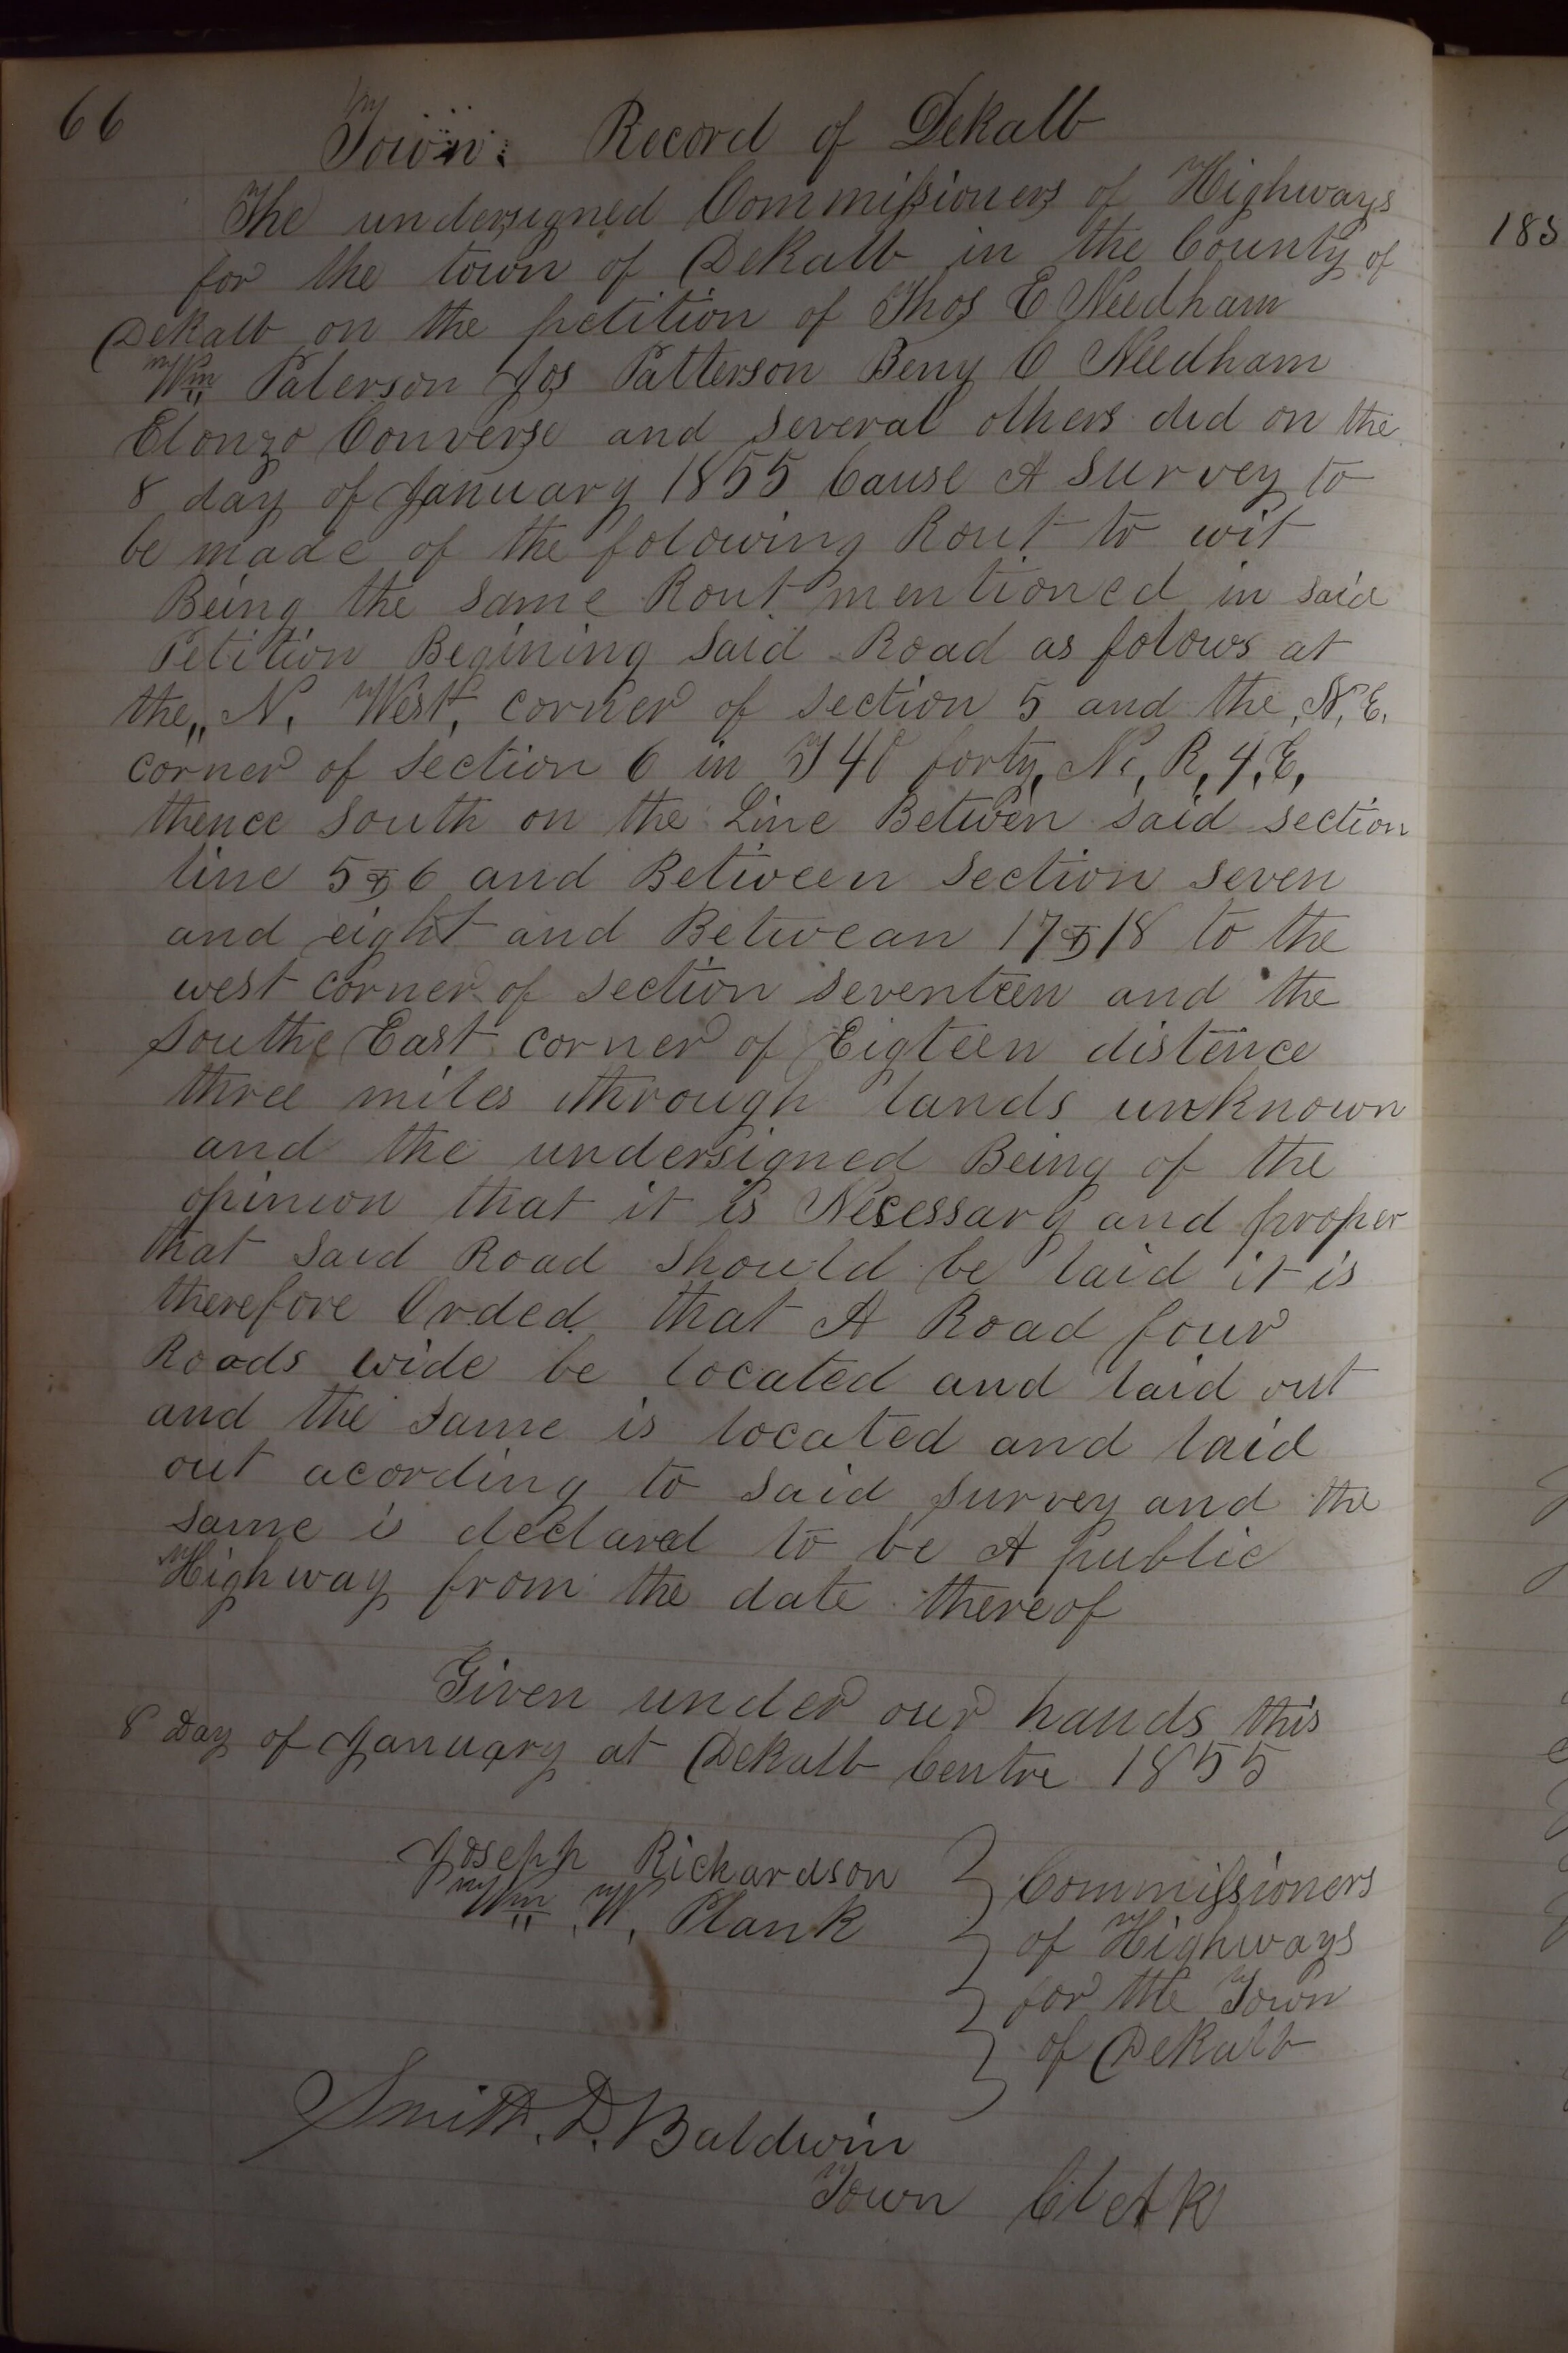 66
Town: Record of Dekalb
The undersigned Commissioners of Highways
for the town of Dekalb in the County of
Dekalb on the petition of Thos E Needham
Wm Paterson Jos Patterson Benj C Needham
Elonzo Converse and several others did on the
8 day of January 1855 Cause A survey to
be made of the folowing Rout to wit
Being the same Rout mentioned in said
Petition Begining said Road as folows at
the,, N. West, corner of section 5 and the, N, E,
corner of section 6 in T 40 forty, N, R, 4, E,
thence south on the Line Betwen said section
line 5 & 6 and Between section seven
and eight and Betwean 17 & 18 to the
west corner of section seventeen and the
southe East corner of Eigteen distence
three miles through lands unknown
and the undersigned Being of the
opinion that it is Necessary and proper
that said Road should be laid it is
therefore Orded that A Road four
Roads wide be located and laid out
and the same is located and laid
out acording to said survey and the
same is declared to be A public
Highway from the date thereof
Given under our hands this
8 Day of January at Dekalb Centre 1855
Joseph Richardson
Wm W, Plank
Commissioners
of Highways
for the Town
of Dekalb
Smith. D. Baldwin
Town Clerk
185